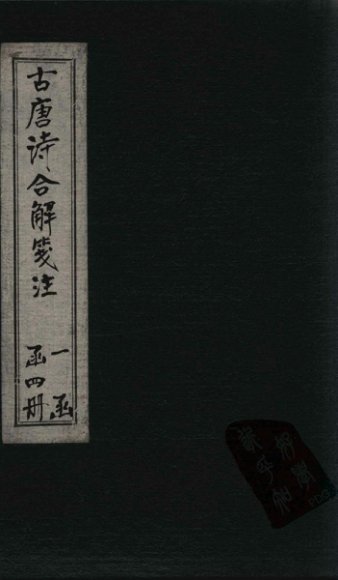 古唐诗合解笺注
一函
函四册
PDG